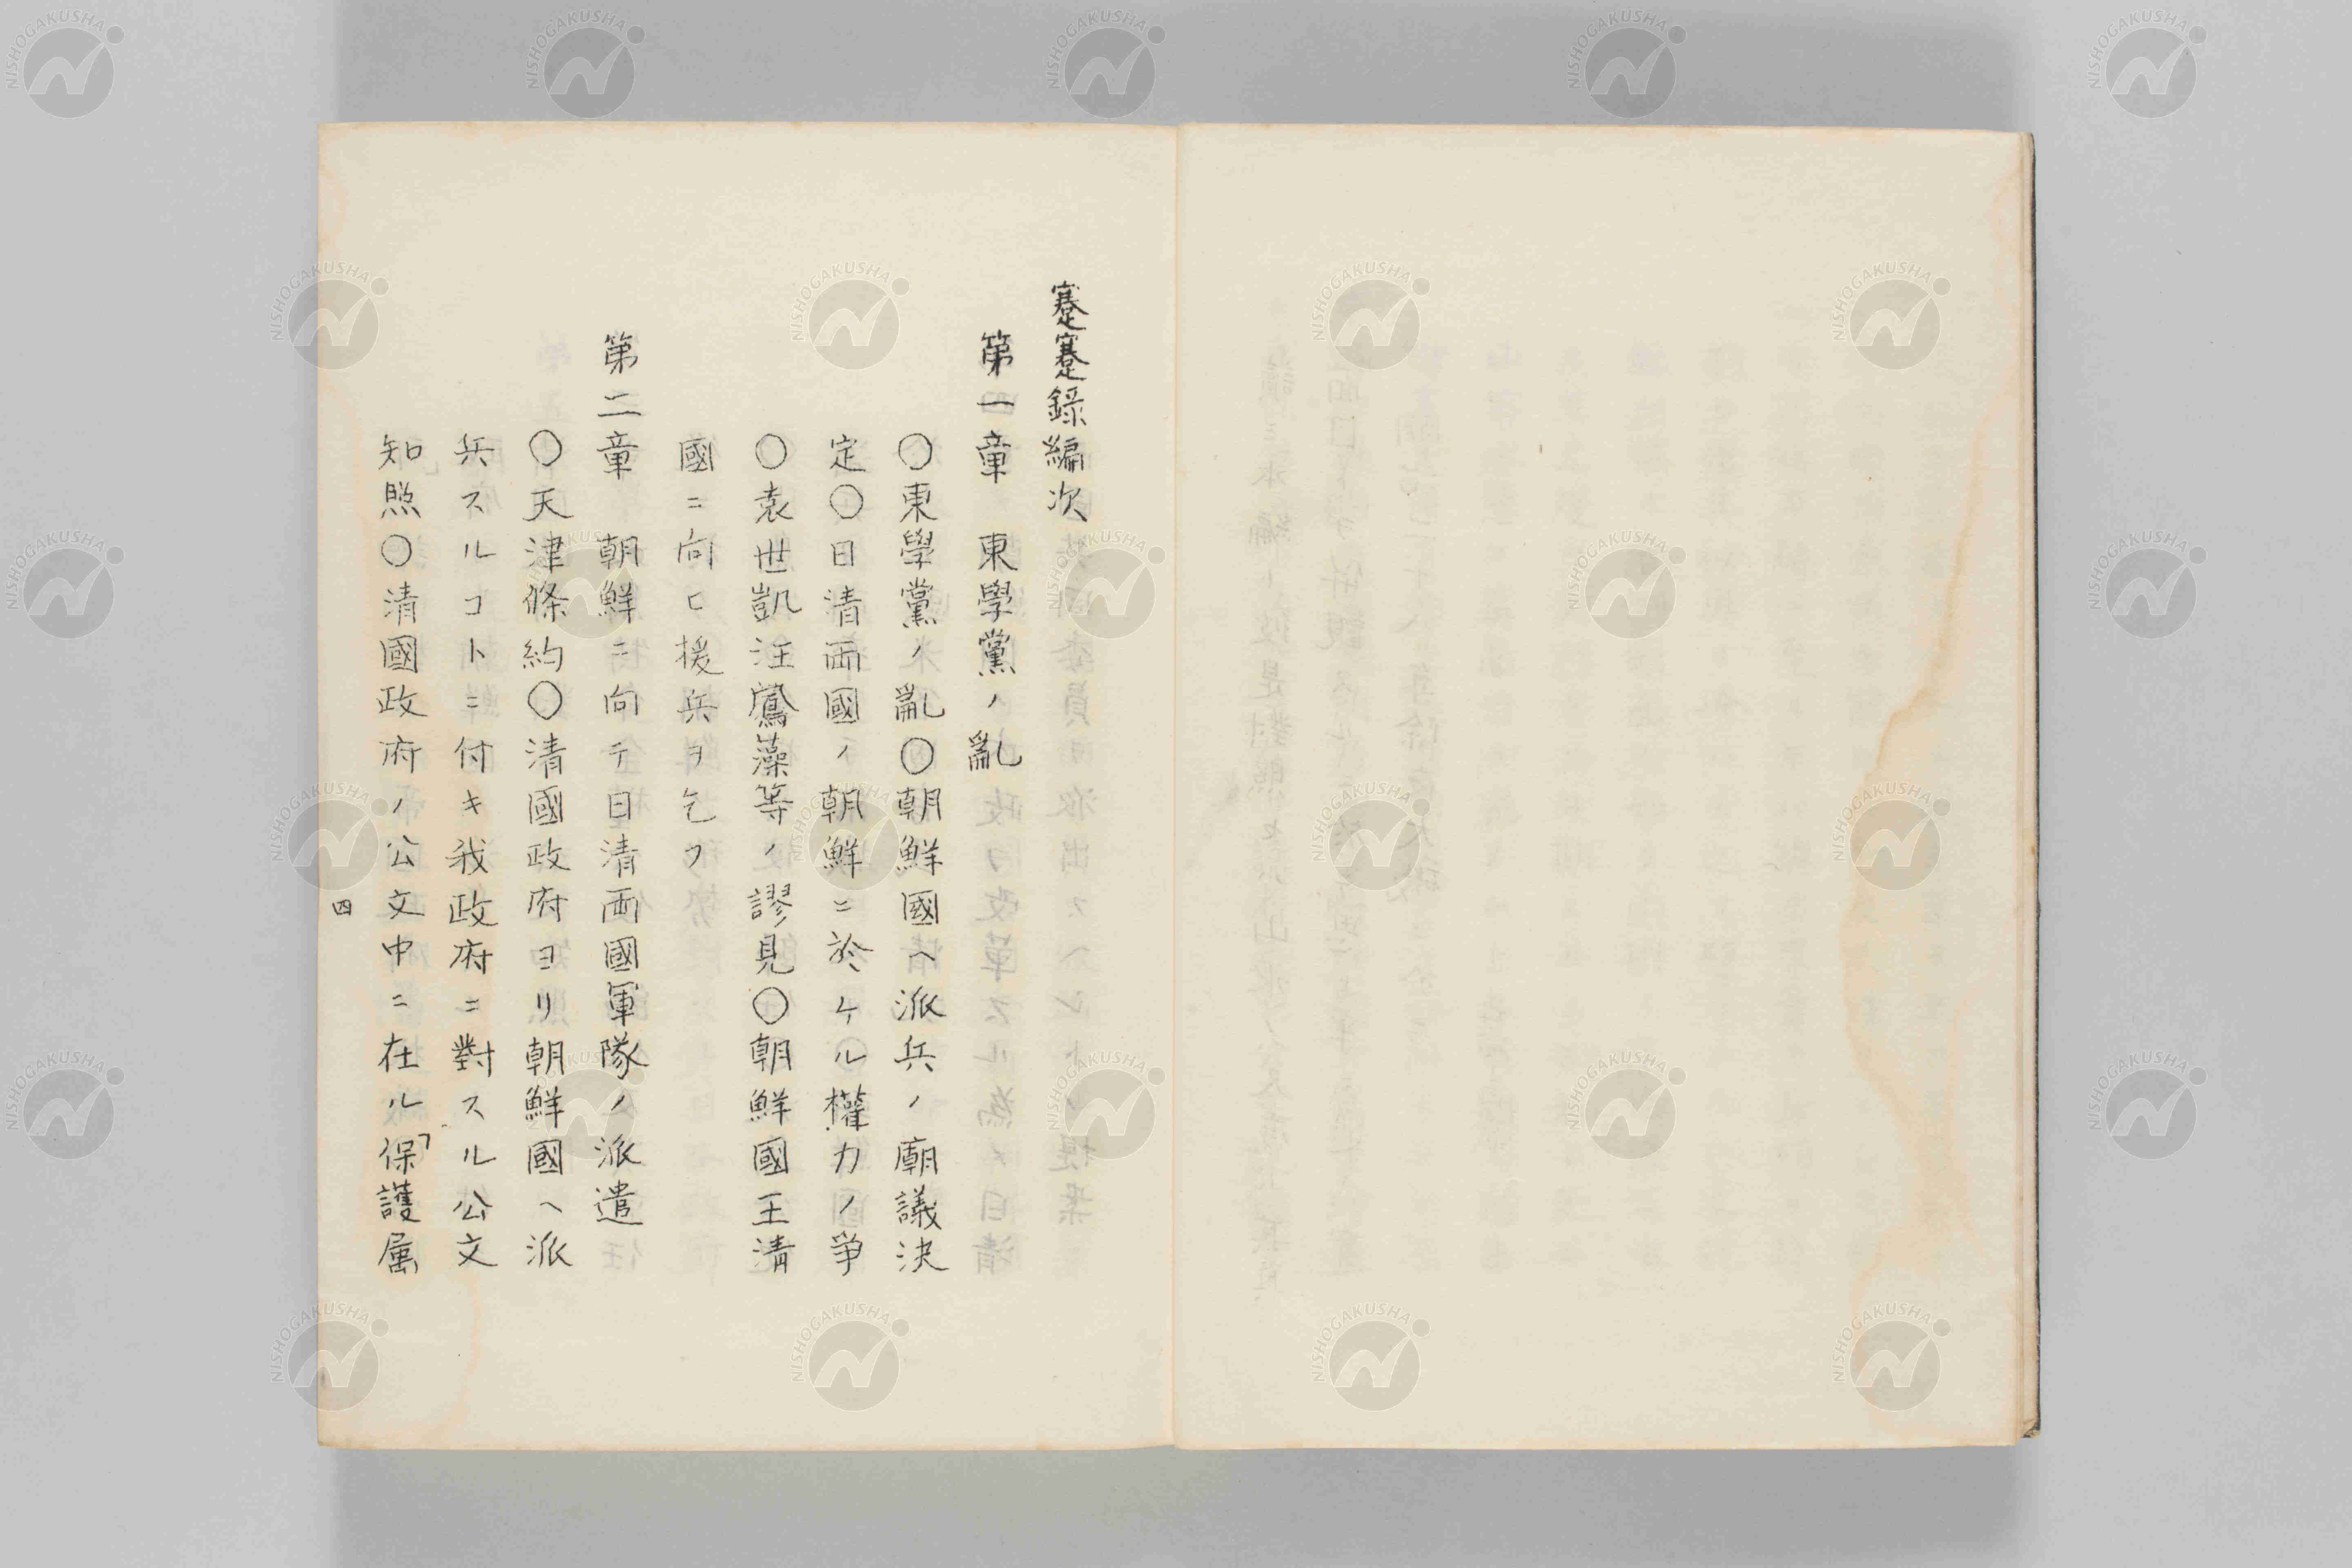 蹇蹇錄編次
第一章　東學黨ノ亂
〇東學黨ノ亂〇朝鮮國ヘ派兵ノ廟議決
定〇日清両國ノ朝鮮ニ於ケル權力ノ爭
〇袁世凱汪鳳藻等ノ謬見〇朝鮮國王清
國ニ向ヒ援兵ヲ乞フ
第二章　朝鮮ニ向テ日清両國軍隊ノ派遣
〇天津條約〇清國政府ヨリ朝鮮國ヘ派
兵スルコトニ付キ我政府ニ對スル公文
知照〇清國政府ノ公文中ニ在ル「保護属
四
NISHOGAKUSHA